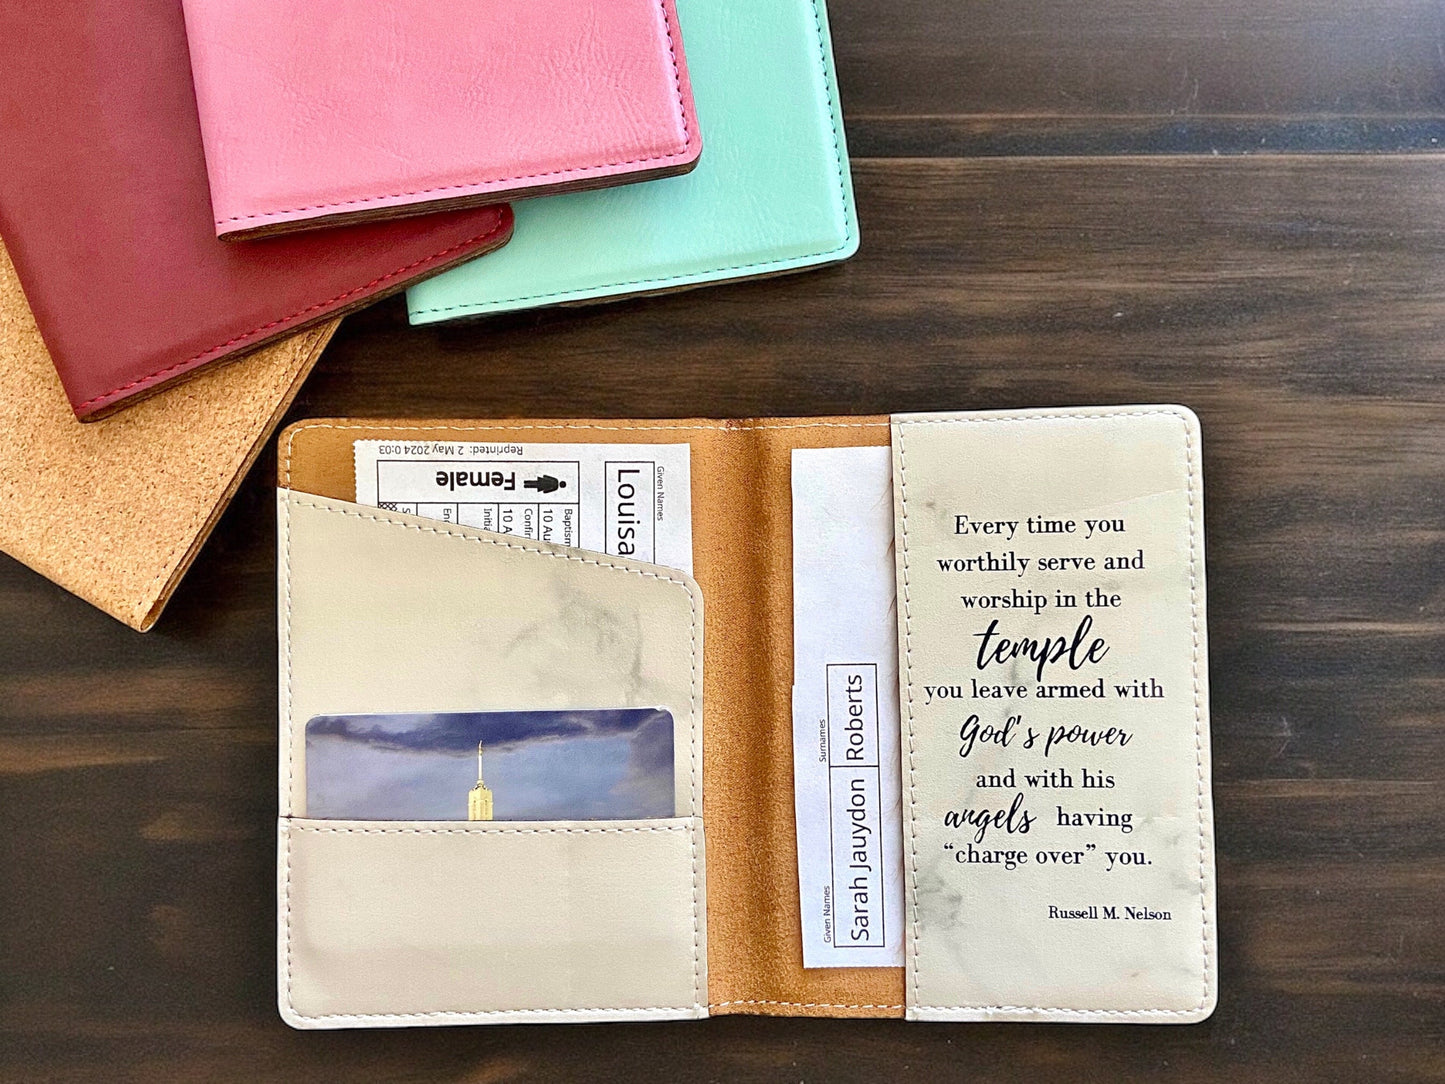 Reprinted: 2 May 2024 0:03
Female
Given Names
Louisa
Baptism
10 Au
Confir
10 A
Initia
En
S
Surnames
Roberts
Given Names
Sarah Jauydon
Every time you
worthily serve and
worship in the
temple
you leave armed with
God's power
and with his
angels having
“charge over” you.
Russell M. Nelson